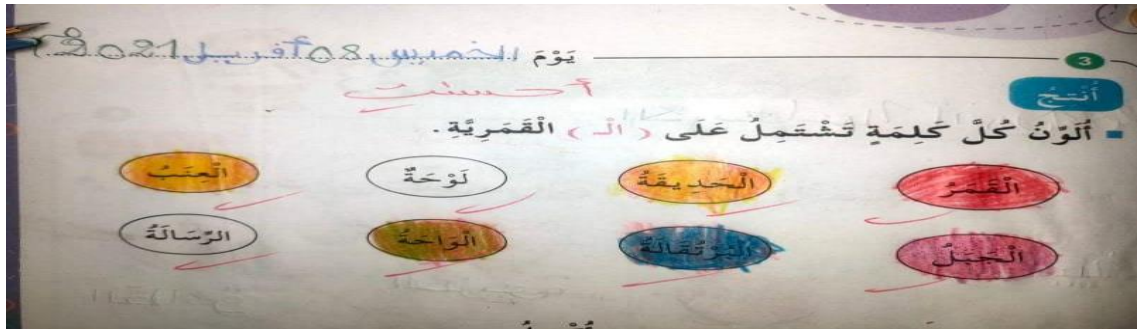 3 يَوْمَ الخميس 08 أفريل 2021
أُنْتِجُ
أحسنت
أُلَوِّنُ كُلَّ كَلِمَةٍ تَشْتَمِلُ عَلَى ( الْـ ) الْقَمَرِيَّةِ.
الْقَمَرُ الْحَدِيقَةُ لَوْحَةٌ الْعِنَبُ
الْجَبَلُ الْبُرْتُقَالَةُ الْوَاحَةُ الرِّسَالَةُ